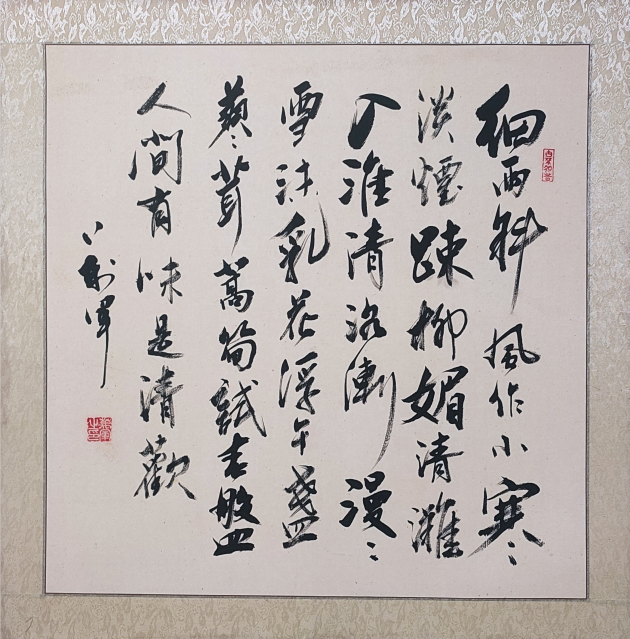 細雨斜風作小寒
淡煙踈柳媚清灘
入淮清洛漸漫〻
雪沫乳花浮午盞
蓼茸蒿筍試春盤
人間有味是清歡